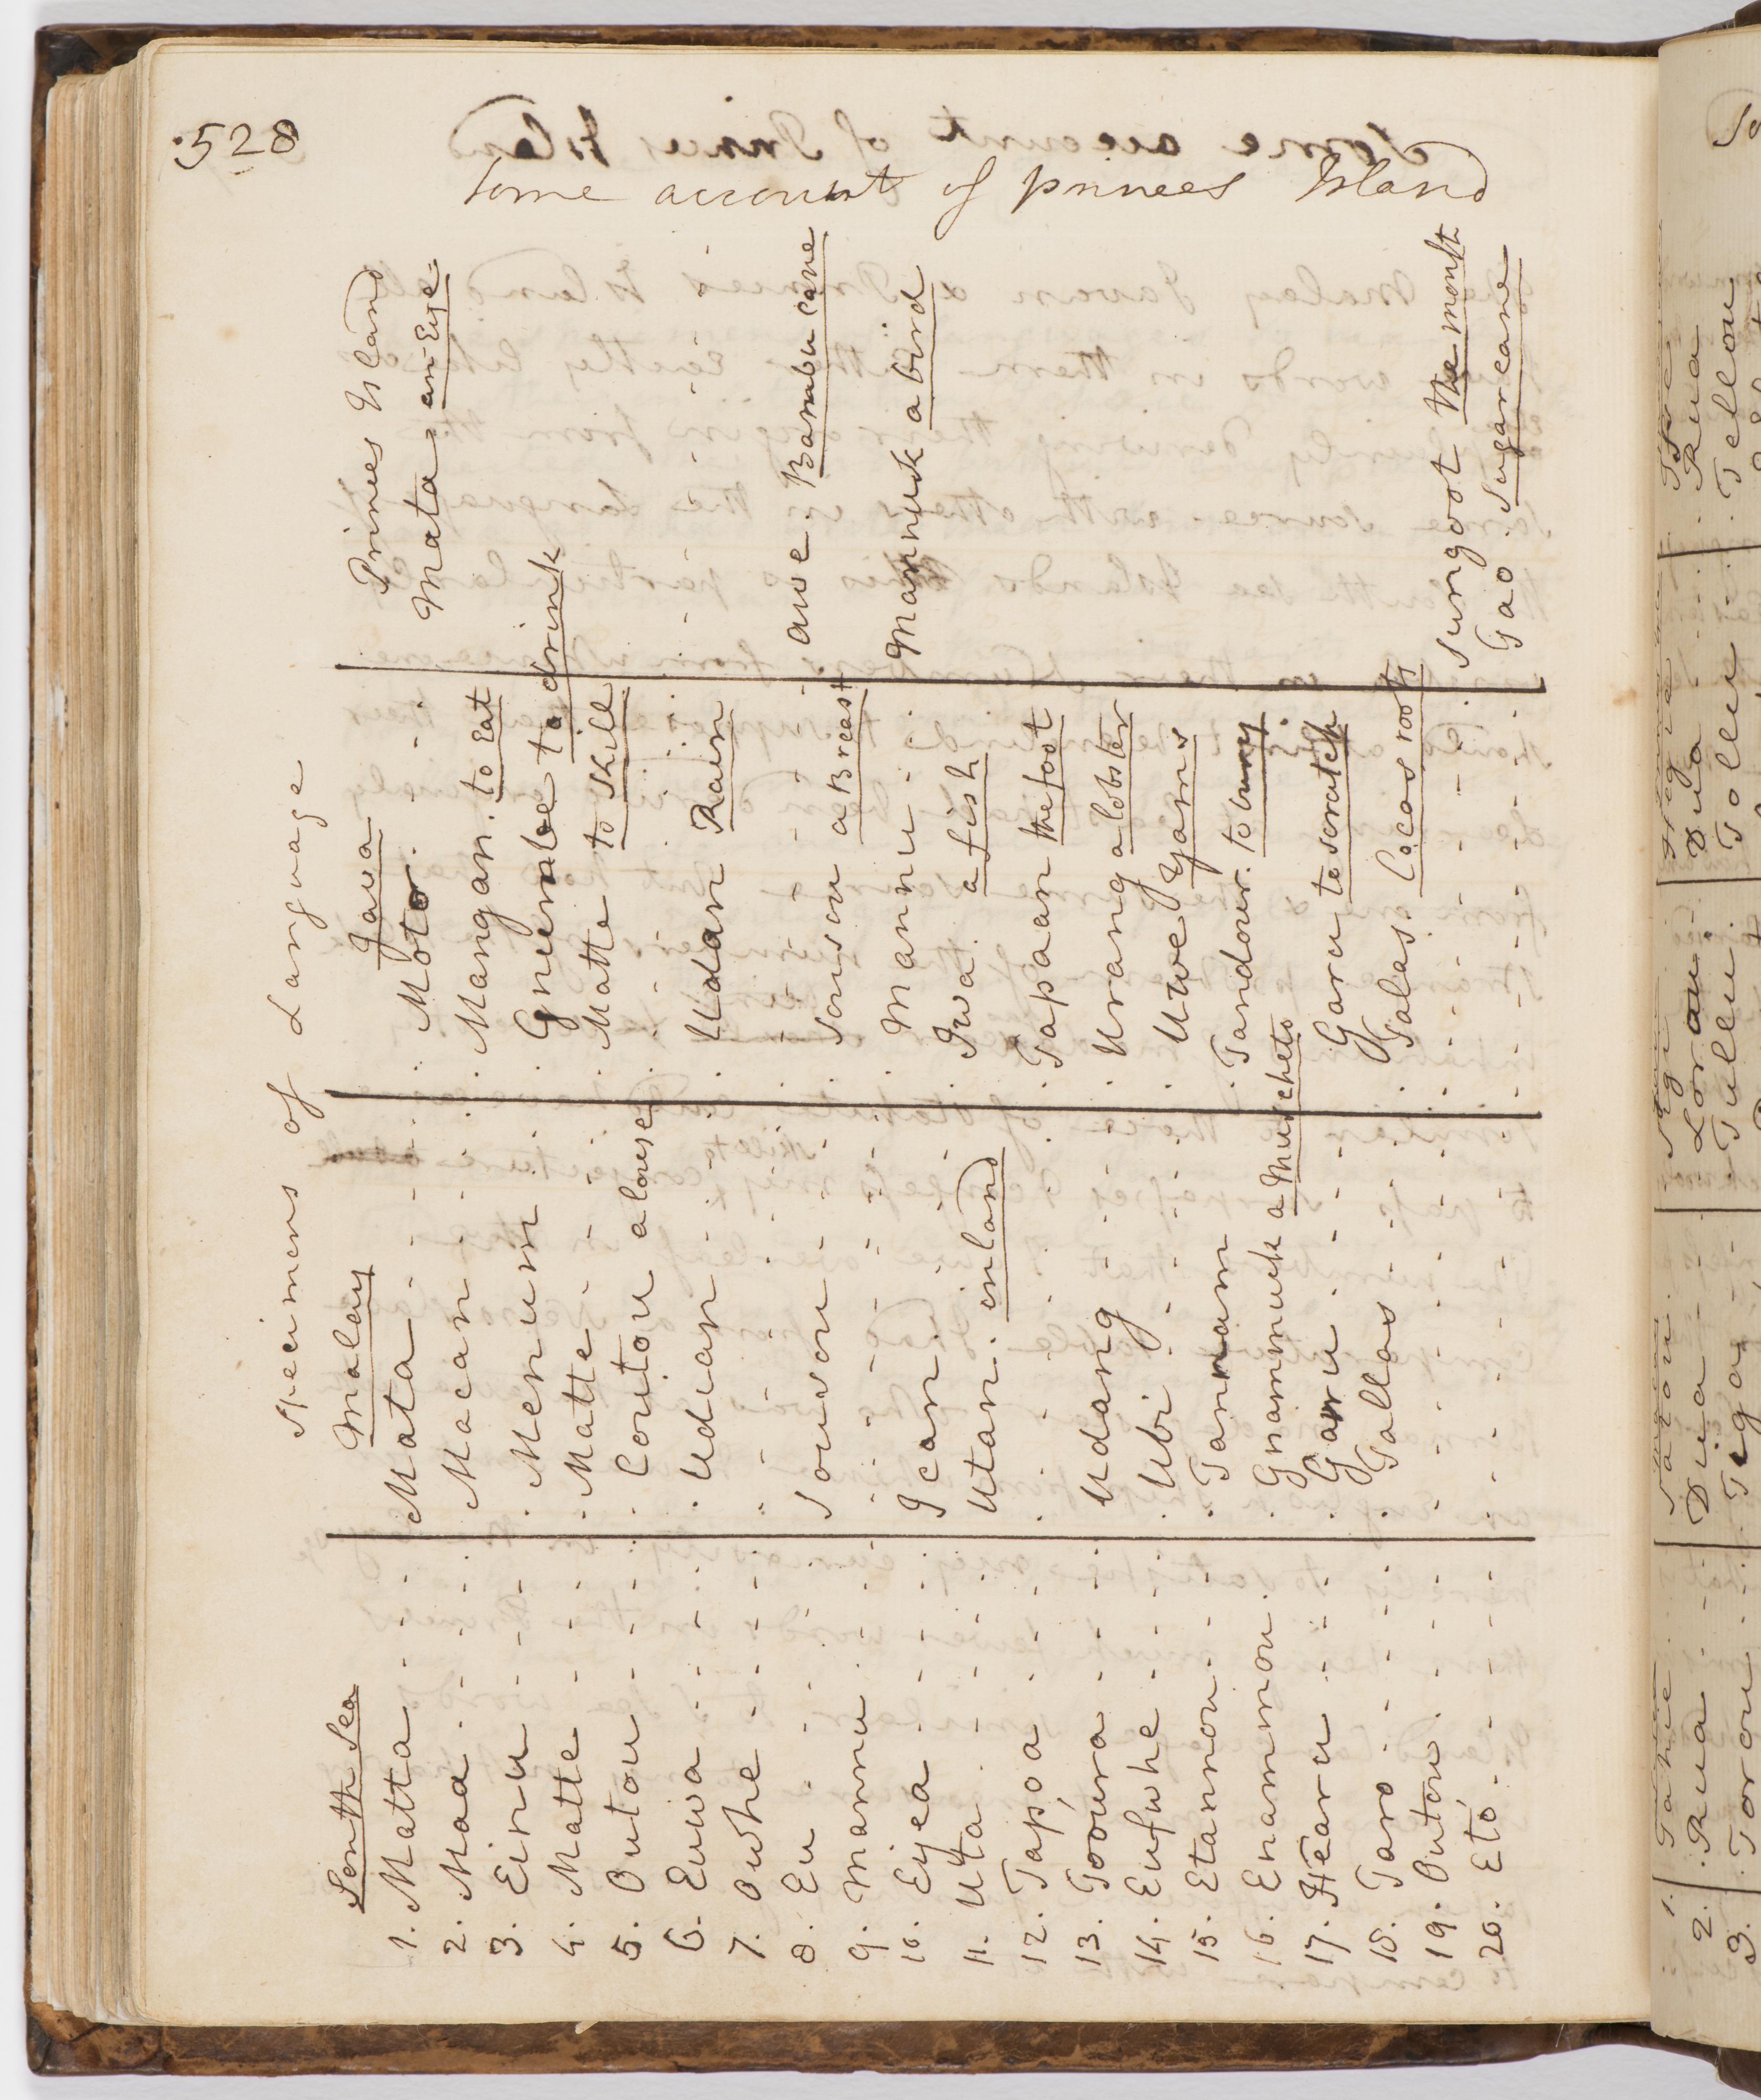 528
Some account of princes Island
Specimens of Language
South Sea Malay Java Princes Island
1. Matta Mata Moto Mata an Eye
2. Maa Macan Mangan to Eat
3. Einu Menum Gnumbe to drink
4. Matte Matte Matte to Kill
5. Outou Coutou a louse
6. Euwa Udian Udan Rain
7. Owhe awe Bambu cane
8. Eu Sousou Sousou a Breast
9. Mannu Mannu Mannuk a bird
10. Eyea Ican Iwa a fish
11. Uta Utan inland
12. Tapoa Tapaan the foot
13. Tooura Udang Urang a lobster
14. Eufwhe Ubi Uwe Yams
15. Etannou Tannam Tandour to bury
16. Enammou Gnammuck a Muscheto
17. Hearu Garu Garu to scratch
18. Taro Tallas Tales Cocos roots
19. Outou Sungoot the mouth
20. Eto Tao Sugar cane